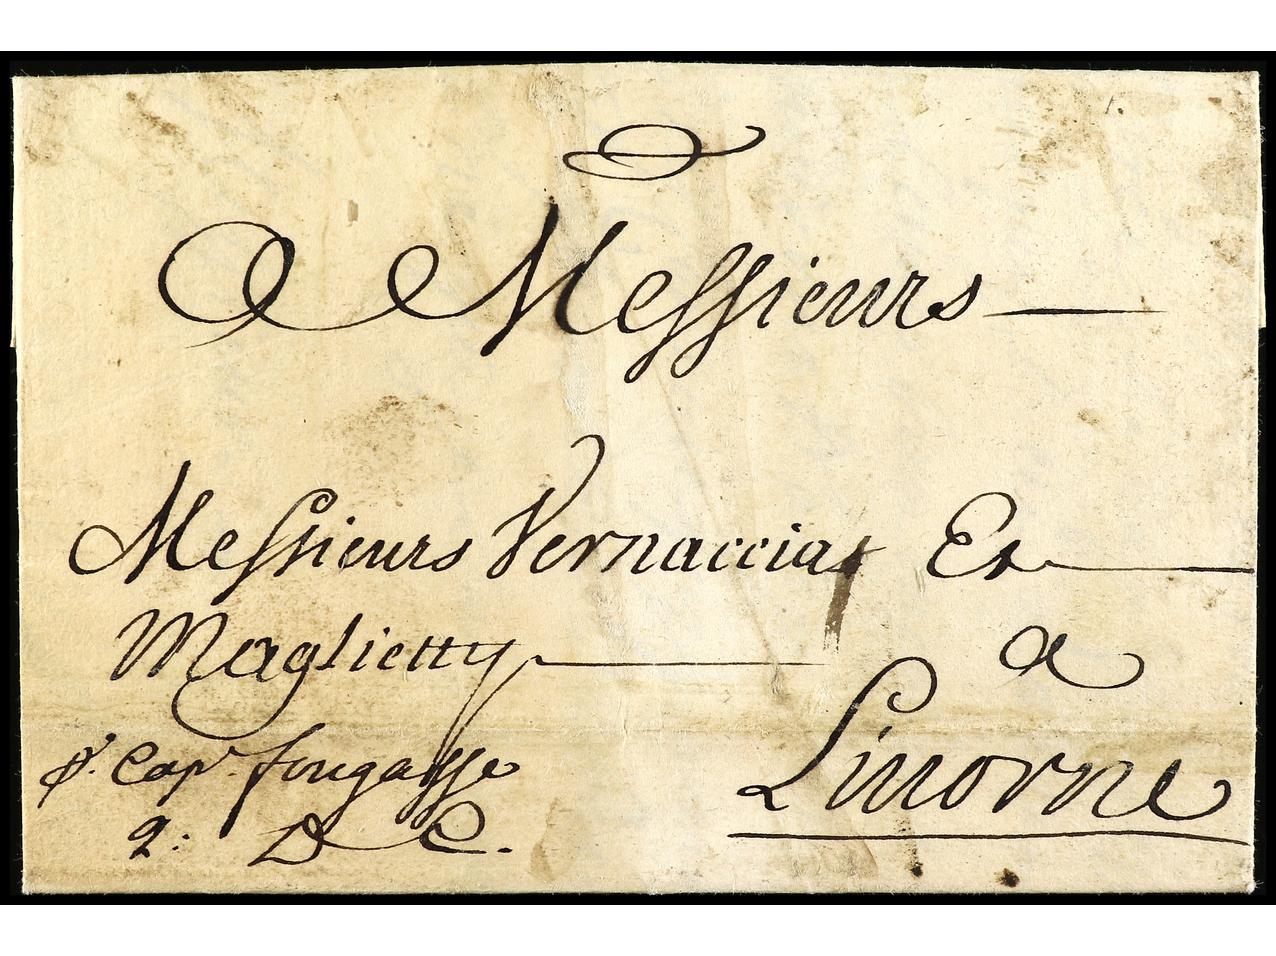 A Messieurs
Messieurs Vernaccia Et
Maglietty a
Livorne
pr. Cap. fougasse
q: D C.